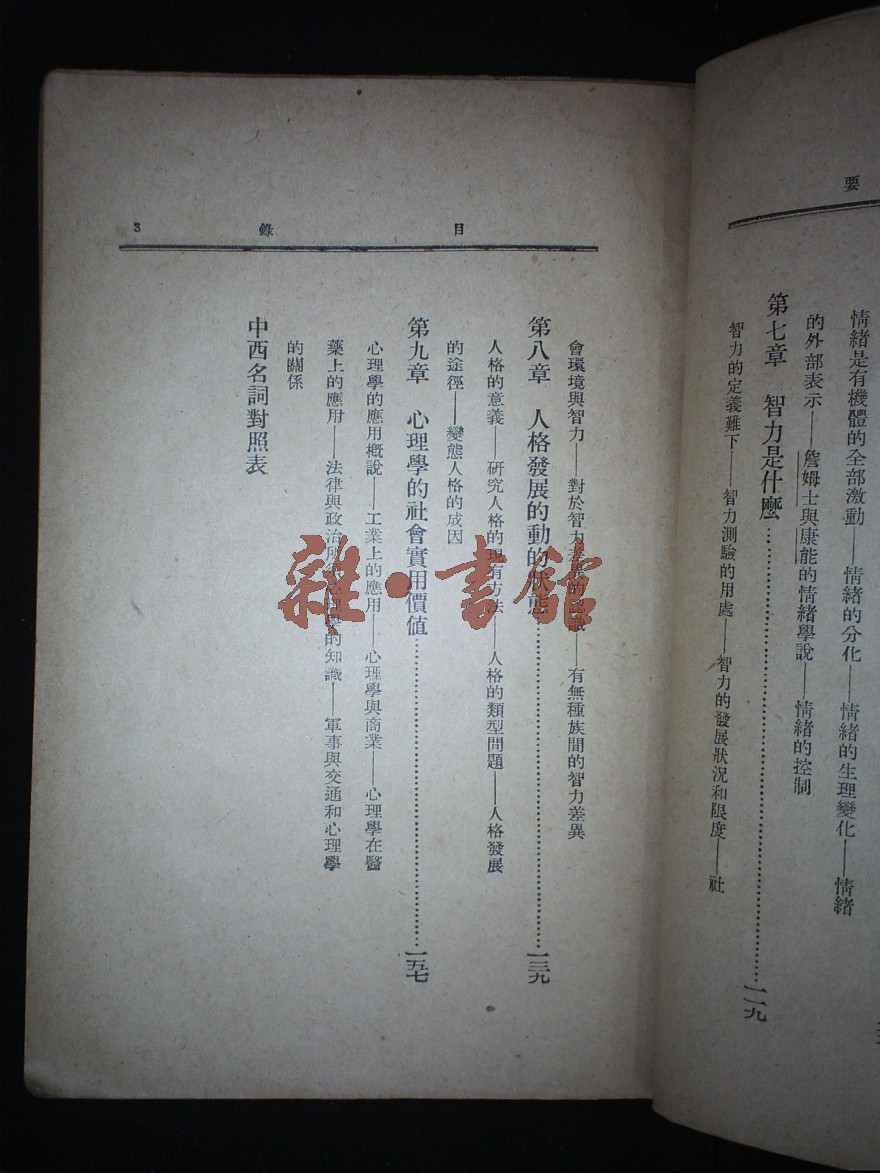 要
情緒是有機體的全部激動——情緒的分化——情緒的生理變化——情緒
的外部表示——詹姆士與康能的情緒學說——情緒的控制
第七章　智力是什麼……一一九
智力的定義難下——智力測驗的用處——智力的發展狀況和限度——社
目　錄　3
會環境與智力——對於智力差異的　　——有無種族間的智力差異
第八章　人格發展的動的狀態……一三九
人格的意義——研究人格的現有方法——人格的類型問題——人格發展
的途徑——變態人格的成因
第九章　心理學的社會實用價值……一五七
心理學的應用概說——工業上的應用——心理學與商業——心理學在醫
藥上的應用——法律與政治所　心理學的知識——軍事與交通和心理學
的關係
中西名詞對照表
雜·書館